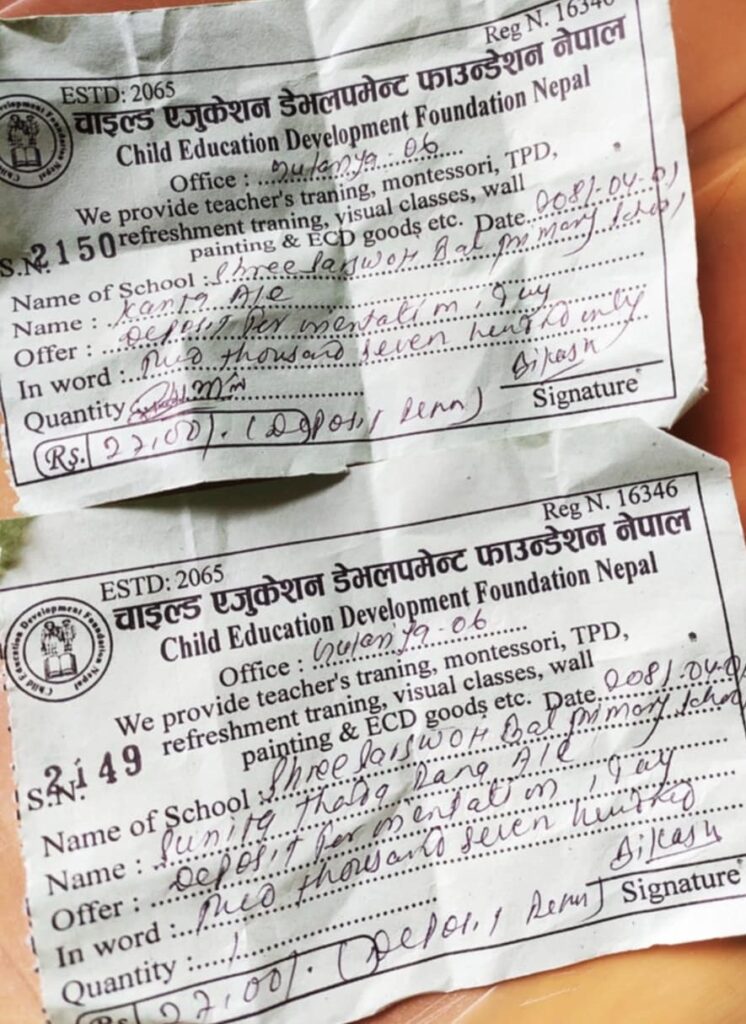 Reg N. 16346
ESTD: 2065
चाइल्ड एजुकेशन डेभलपमेन्ट फाउन्डेशन नेपाल
Child Education Development Foundation Nepal
Office :
We provide teacher's traning, montessori, TPD,
refreshment traning, visual classes, wall
painting & ECD goods etc. Date 2081-04-01
S.N. 2150
Name of School : Shree Bal primary School
Name : Kanta Ale
Offer : Deposit
In word : thousand seven hundred only
Quantity
Bikash
Signature
Rs. 27,00/. (Deposit
Reg N. 16346
ESTD: 2065
चाइल्ड एजुकेशन डेभलपमेन्ट फाउन्डेशन नेपाल
Child Education Development Foundation Nepal
Child Education Development Foundation Nepal
Office :
We provide teacher's traning, montessori, TPD,
refreshment traning, visual classes, wall
painting & ECD goods etc. Date 2081-04-
S.N. 2149
Name of School : Shree Bal primary
Name : Sunita Thada Rana Ale
Offer : Deposit
In word : thousand seven hundred
Quantity : 1
Bikash
Signature
Rs 27,00/. (Deposit